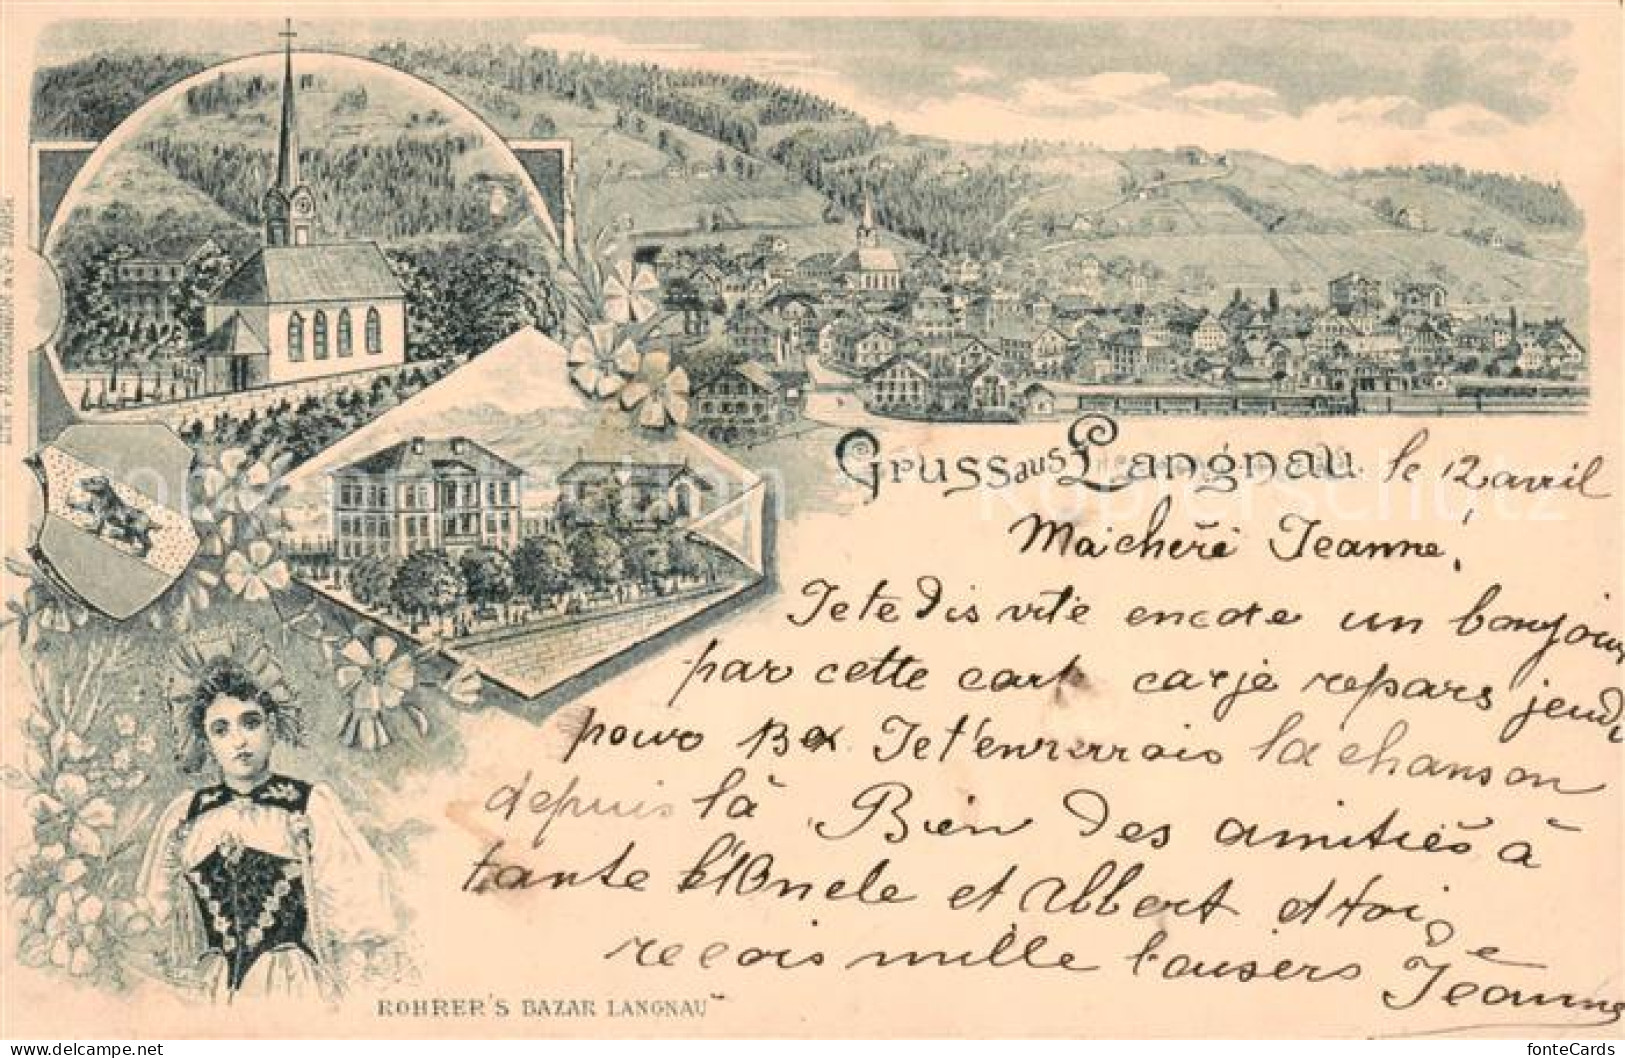 Gruss aus Langnau. le 12 avril
Ma chère Jeanne,
Je te dis vite encore un bonjour
par cette carte car je repars jeudi
pour Bex. Je t'enverrais la chanson
depuis là Bien des amitiés à
tante l'Oncle et Albert et toi
reçois mille baisers Jeanne
ROHRER'S BAZAR LANGNAU
https://www.fontecards.com
fonteCards